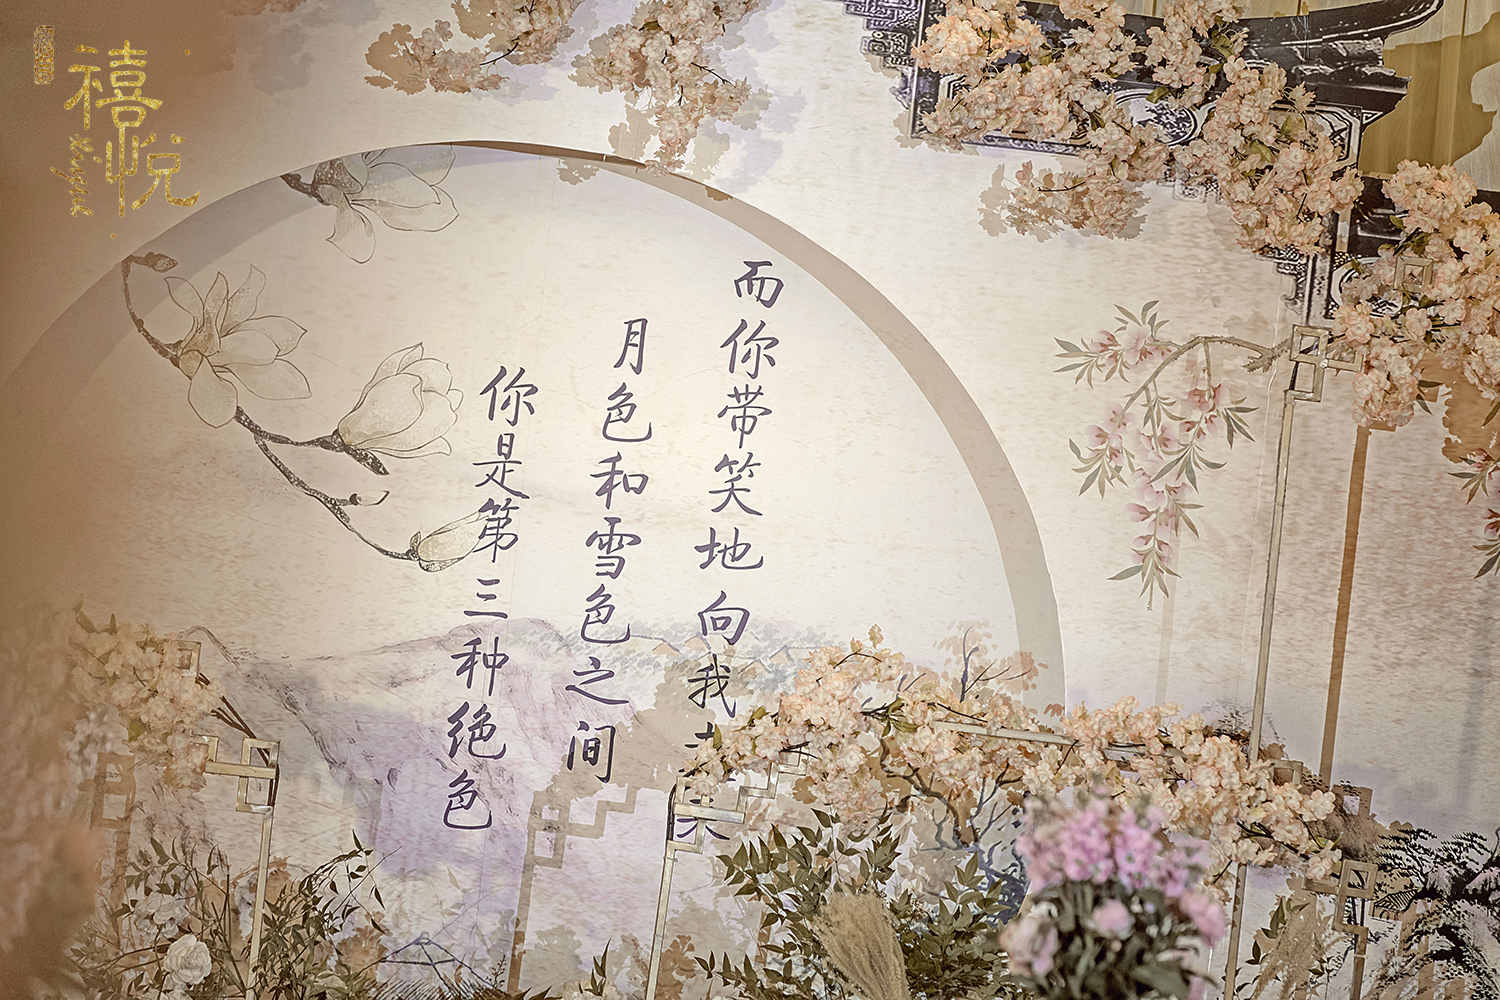 禧悦
而你带笑地向我走来
月色和雪色之间
你是第三种绝色